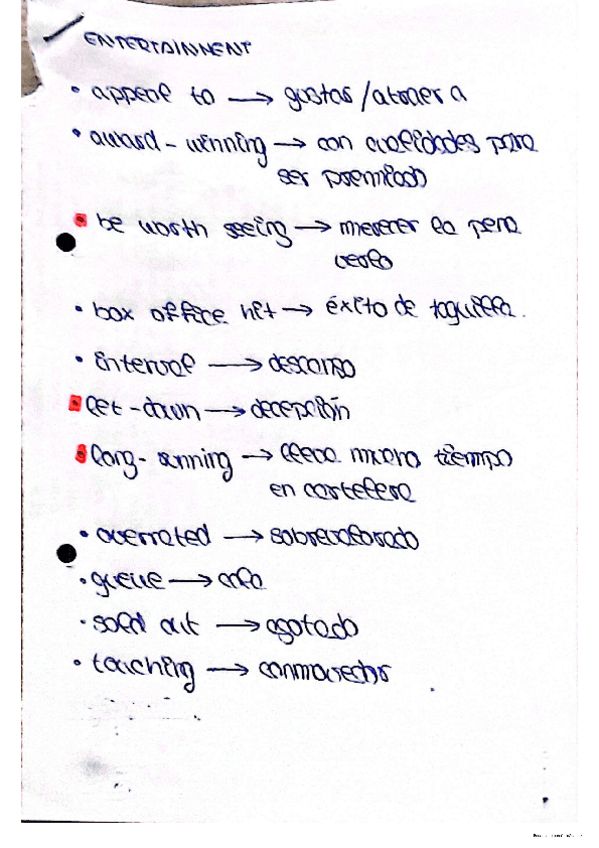 ENTERTAINMENT
• appeal to → gustar/atraer a
• award-winning → con cualidades para
ser premiado
• be worth seeing → merecer la pena
verlo
• box office hit → éxito de taquilla.
• interval → descanso
• let-down → decepción
• long-running → lleva mucho tiempo
en cartelera
• overrated → sobrevalorado
• queue → cola
• sold out → agotado
• touching → conmovedor